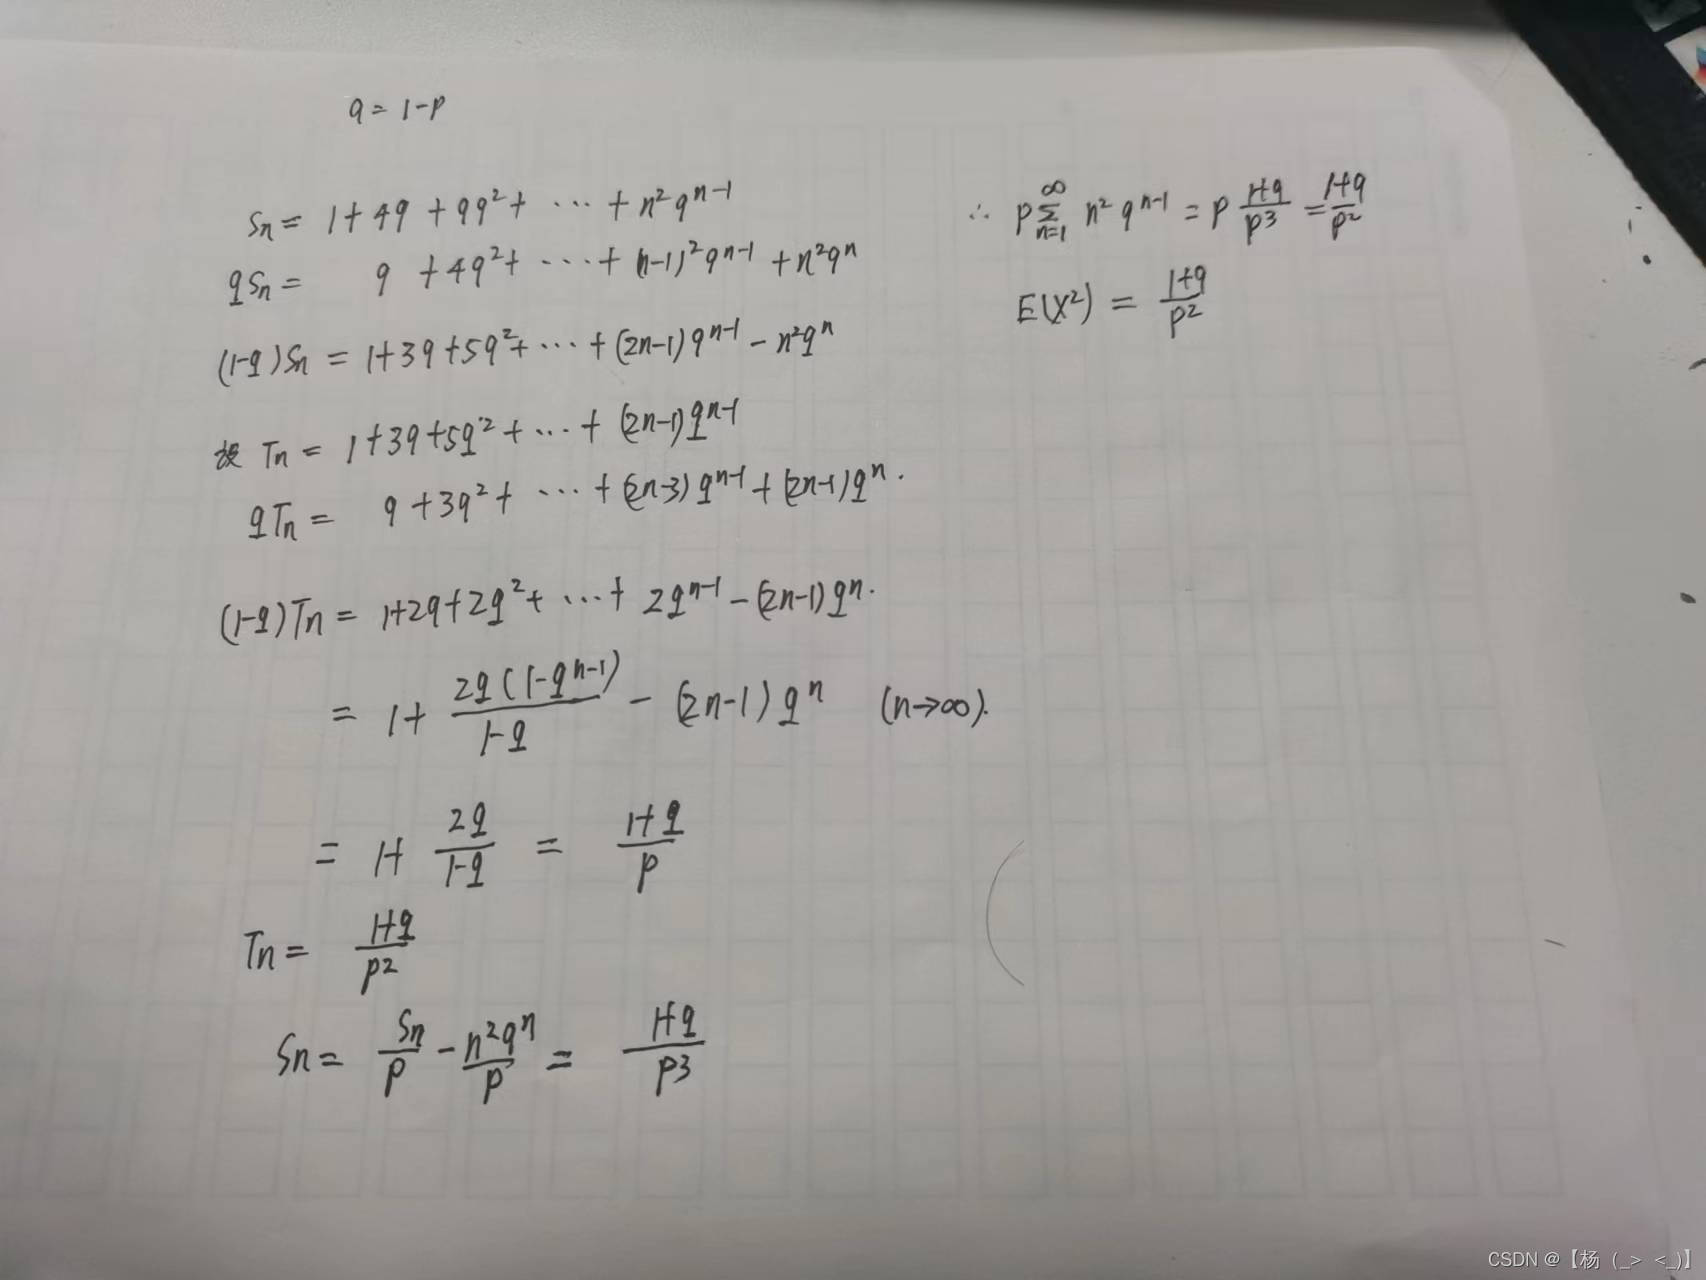 q = 1-p
Sn = 1+4q+9q²+ ⋯ + n²q^{n-1}
qSn = q +4q²+ ⋯ + (n-1)²q^{n-1} +n²q^n
(1-q)Sn = 1+3q+5q²+ ⋯ +(2n-1)q^{n-1} - n²q^n
Tn = 1+3q+5q²+ ⋯ + (2n-1)q^{n-1}
qTn = q +3q²+ ⋯ + (2n-3)q^{n-1} + (2n-1)q^n.
(1-q)Tn = 1+2q+2q²+ ⋯ + 2q^{n-1} - (2n-1)q^n.
= 1+ \frac{2q(1-q^{n-1})}{1-q} - (2n-1)q^n (n→∞).
= 1+ \frac{2q}{1-q} = \frac{1+q}{p}
Tn = \frac{1+q}{p²}
Sn = \frac{Sn}{p} - \frac{n²q^n}{p} = \frac{1+q}{p³}
∴ p\sum_{n=1}^{∞} n²q^{n-1} = p \frac{1+q}{p³} = \frac{1+q}{p²}
E(X²) = \frac{1+q}{p²}
CSDN @【杨（_> <_)】